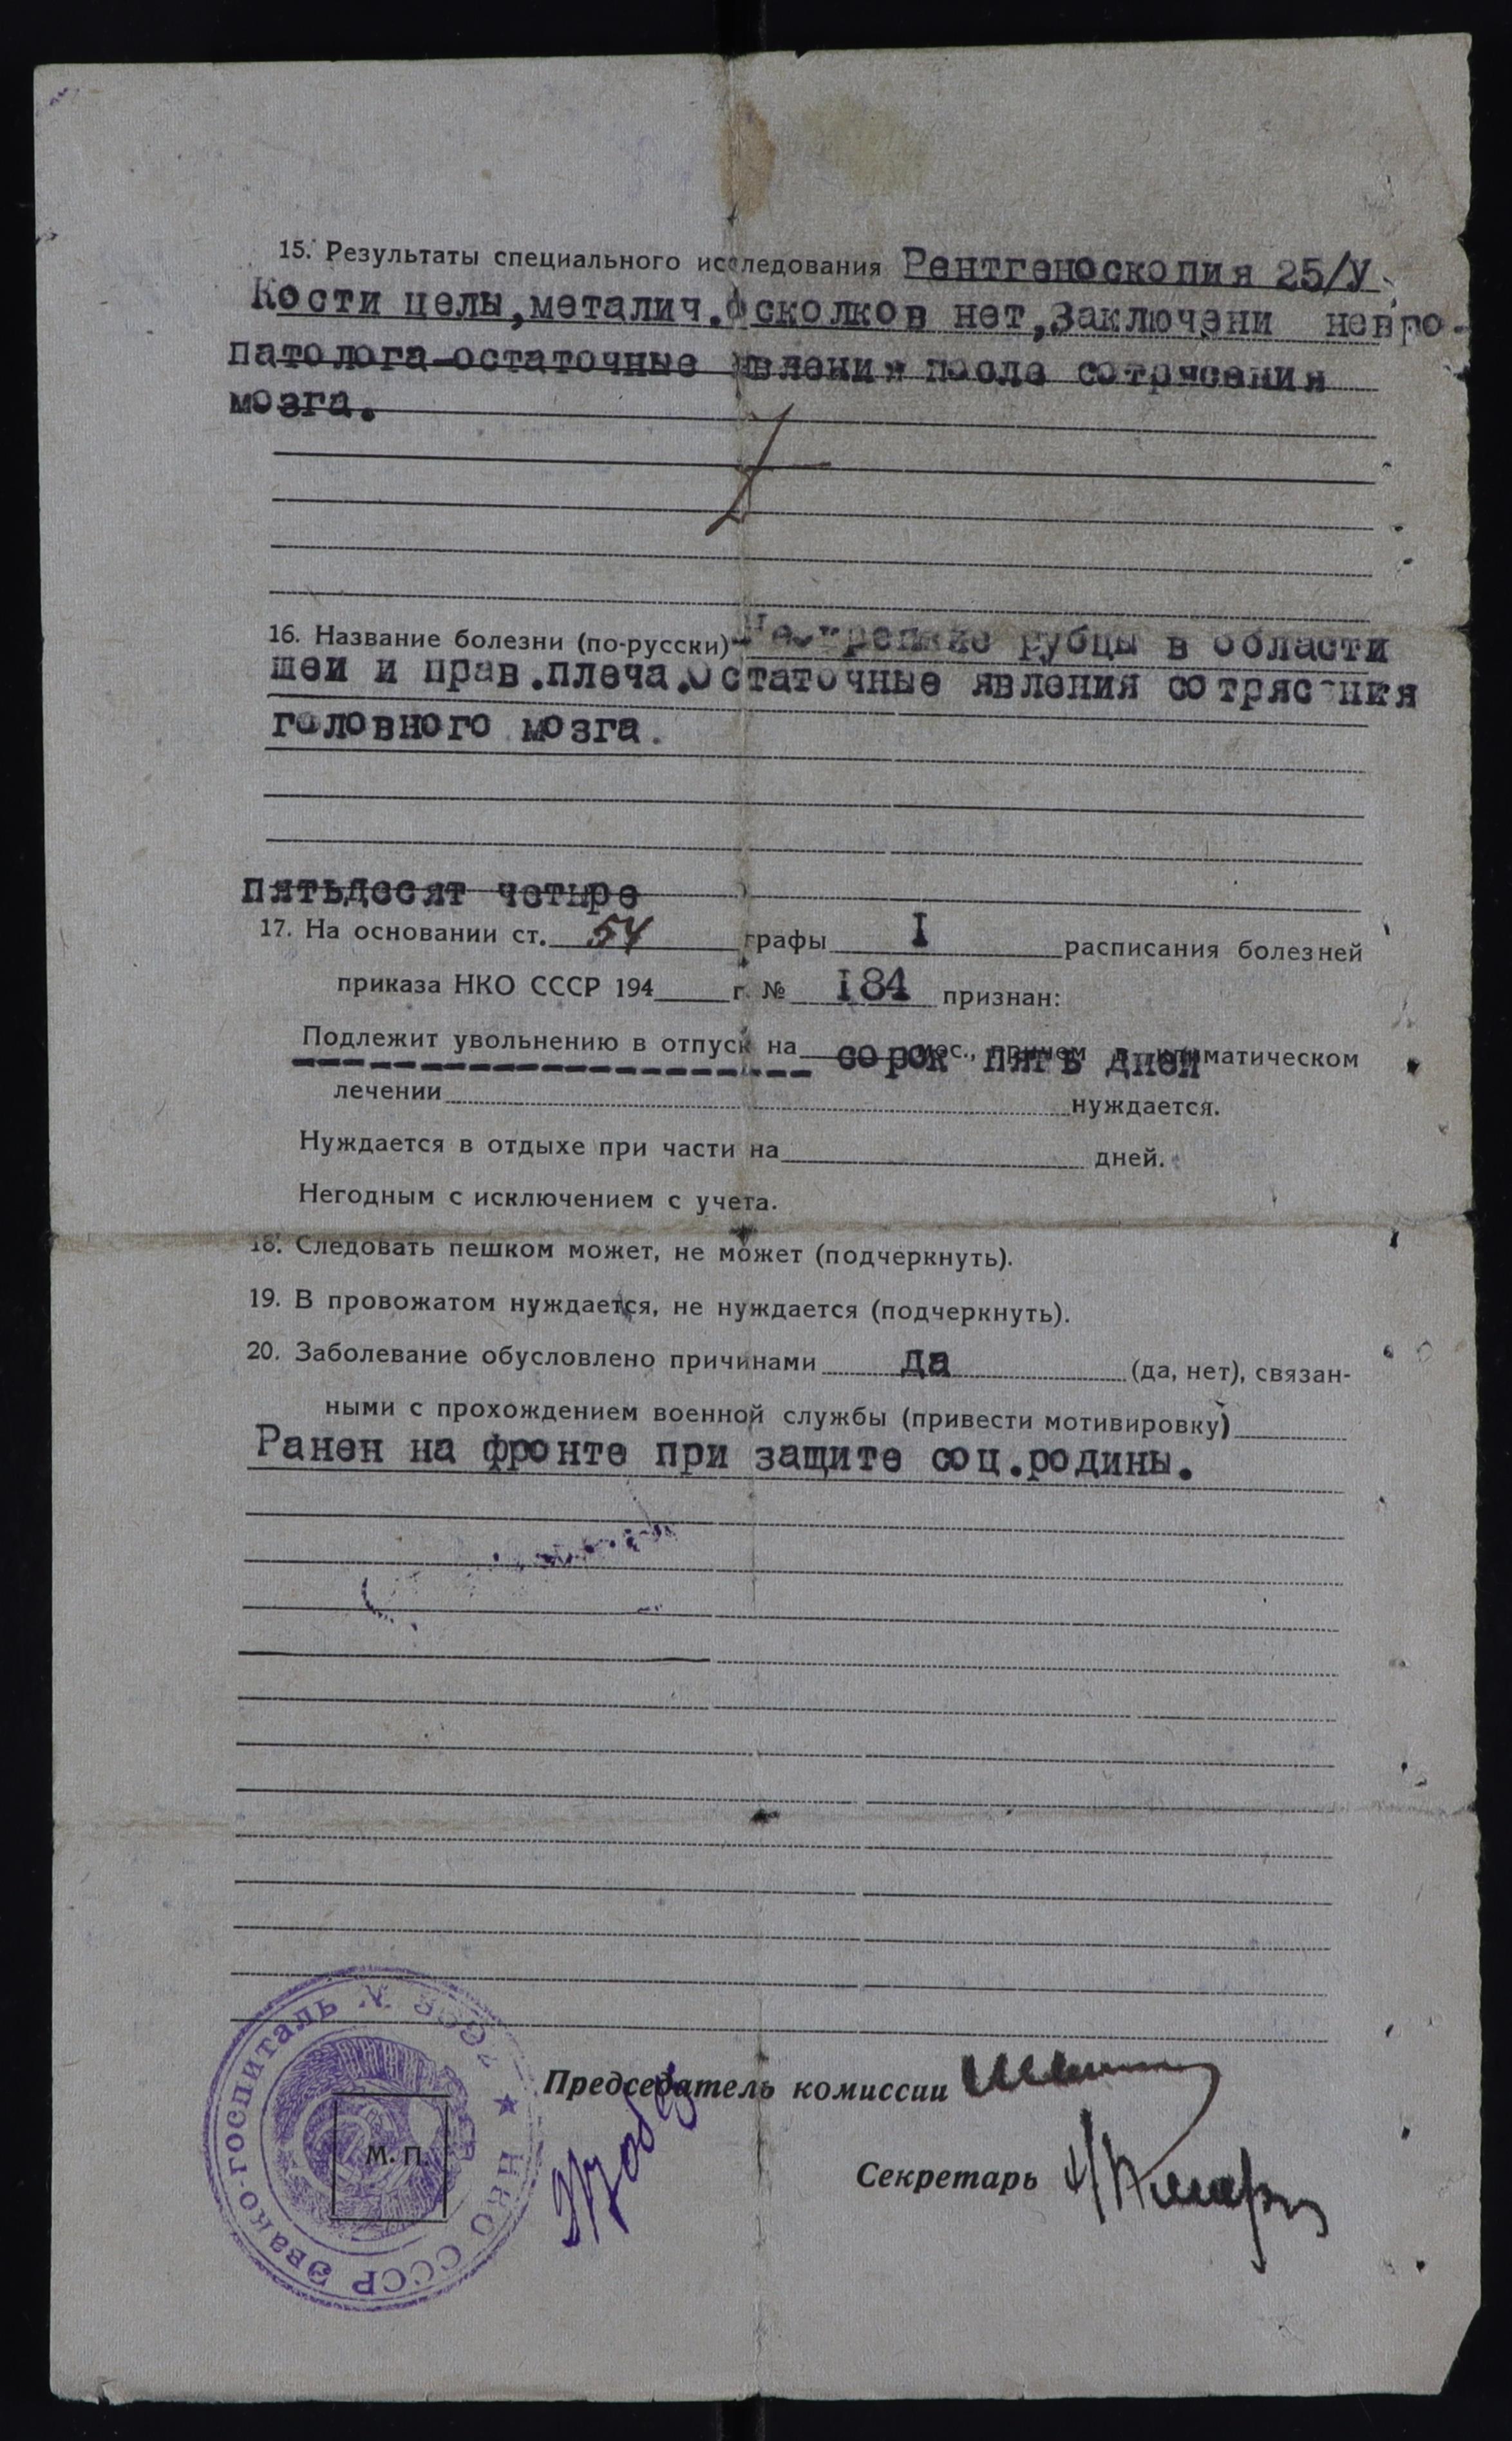 15. Результаты специального исследования Рентгеноскопия 25/У.
Кости целы,металич.осколков нет,Заключени невро-
патолога-остаточные явления после сотрясения
мозга.
16. Название болезни (по-русски) рубцы в области
шеи и прав.плеча.Остаточные явления сотрясения
головного мозга.
пятьдесят четыре
17. На основании ст. 54 графы I расписания болезней
приказа НКО СССР 194 г. № I84 признан:
Подлежит увольнению в отпуск на мес., причем в климатическом
сорок пять дней
лечении нуждается.
Нуждается в отдыхе при части на дней.
Негодным с исключением с учета.
18. Следовать пешком может, не может (подчеркнуть).
19. В провожатом нуждается, не нуждается (подчеркнуть).
20. Заболевание обусловлено причинами да (да, нет), связан-
ными с прохождением военной службы (привести мотивировку)
Ранен на фронте при защите соц.родины.
Председатель комиссии
Секретарь
М. П.
НКО СССР Эвако-госпиталь №